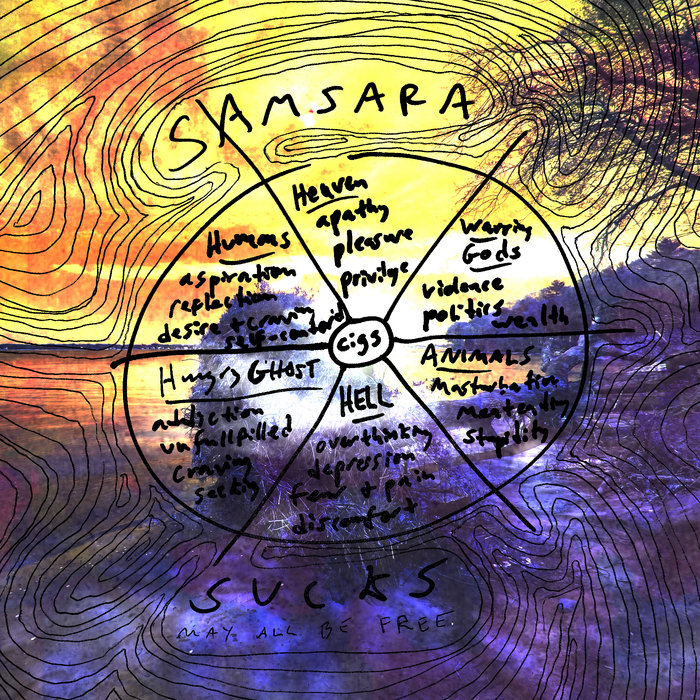 SAMSARA
Heaven
apathy
pleasure
privilge
Warring
Gods
violence
politics
wealth
ANIMALS
Masturbation
stupidity
HELL
overthinking
depression
fear + pain
discomfort
Hungry GHOST
addiction
unfullfilled
craving
seeking
Humans
aspiration
reflection
desire + craving
cigs
SUCKS
MAY ALL BE FREE